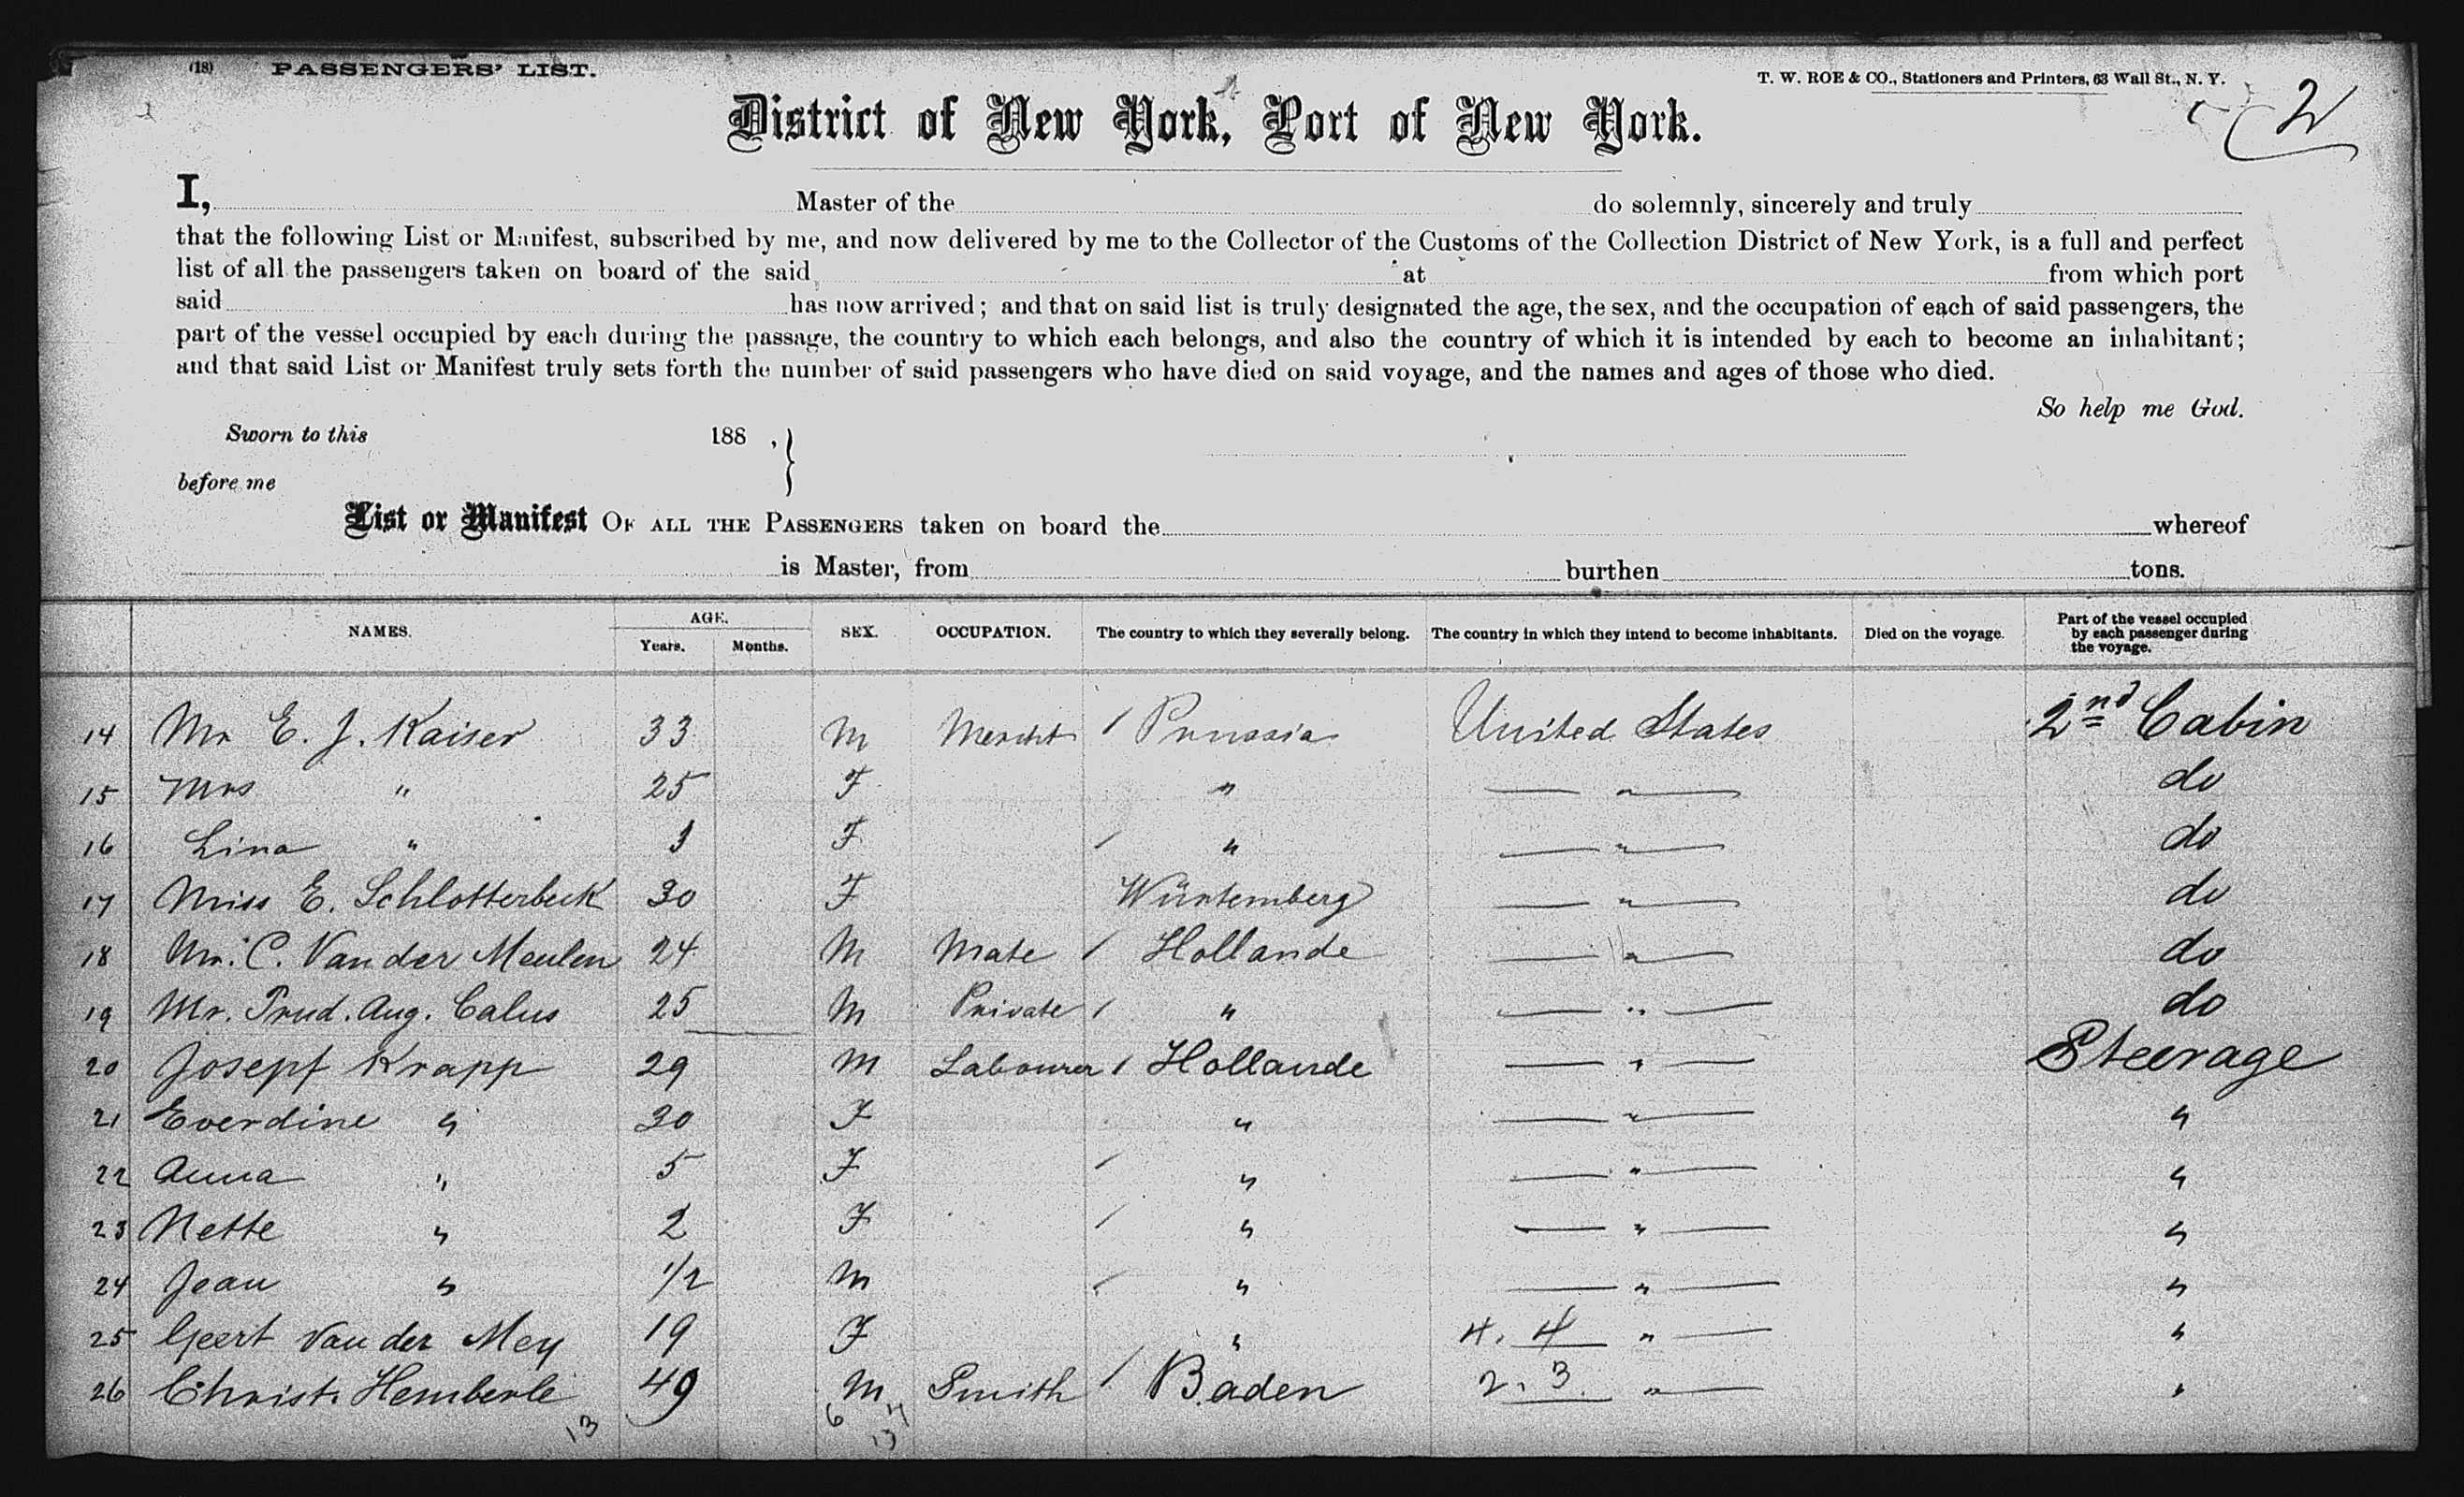 (18) PASSENGERS' LIST.
T. W. ROE & CO., Stationers and Printers, 63 Wall St., N. Y.
2
District of New York, Port of New York.
I, Master of the do solemnly, sincerely and truly
that the following List or Manifest, subscribed by me, and now delivered by me to the Collector of the Customs of the Collection District of New York, is a full and perfect
list of all the passengers taken on board of the said at from which port
said has now arrived; and that on said list is truly designated the age, the sex, and the occupation of each of said passengers, the
part of the vessel occupied by each during the passage, the country to which each belongs, and also the country of which it is intended by each to become an inhabitant;
and that said List or Manifest truly sets forth the number of said passengers who have died on said voyage, and the names and ages of those who died.
So help me God.
Sworn to this 188 , }
before me
List or Manifest OF ALL THE PASSENGERS taken on board the whereof
is Master, from burthen tons.
NAMES. AGE. Years. Months. SEX. OCCUPATION. The country to which they severally belong. The country in which they intend to become inhabitants. Died on the voyage. Part of the vessel occupied by each passenger during the voyage.
14 Mr E. J. Kaiser 33 M Mercht / Prussia United States 2nd Cabin
15 Mrs " 25 F " — " — do
16 Lina " F / " — " — do
17 Miss E. Schlotterbeck 30 F Würtemberg — " — do
18 Mr. C. Van der Meulen 24 M Mate / Hollande — " — do
19 Mr. Prud. Aug. Calus 25 M Private / " — " — do
20 Josepf Krapp 29 M Labourer / Hollande — " — Steerage
21 Everdine " 30 F " — " — "
22 Anna " 5 F / " — " — "
23 Nette " 2 F / " — " — "
24 Jean " 1/2 M / " — " — "
25 Geert Van der Mey 19 F " 4. 4 " — "
26 Christ. Hemberle 49 M Smith / Baden 2. 3. " — "
13 6 7
13